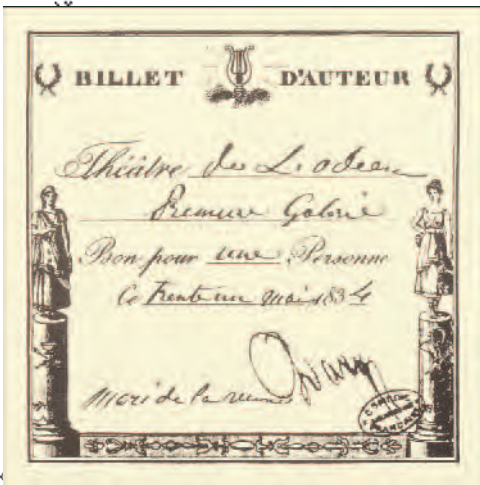 BILLET D'AUTEUR
Théâtre de L'odeon
Premiere Galerie
Bon pour une Personne
Ce trente un mai 1834
mari de la